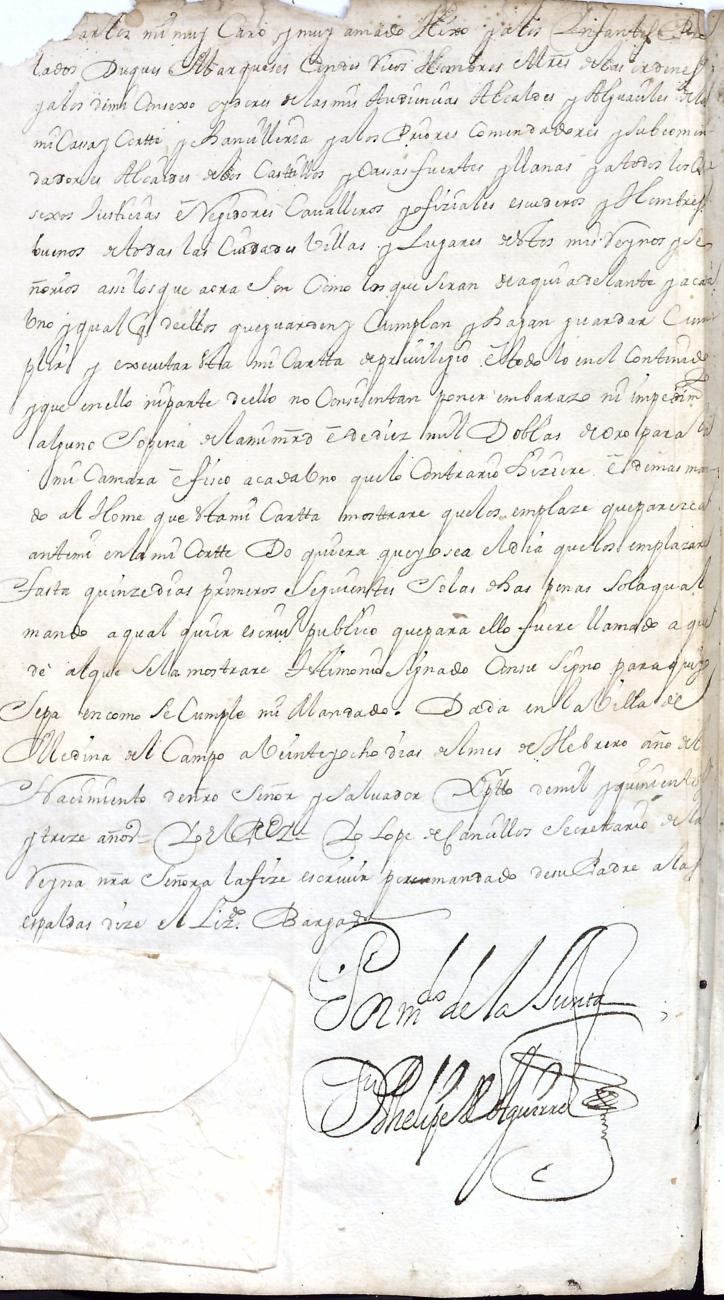 Carlos mi muy Caro y muy amado Hixo y alos Infantes Pre
lados Duques Marqueses Condes Ricos Hombres Mres delas ordenes
y alos dimi Consexo oydores delas mis Audiencias Alcaldes y Alguaciles dela
mi Cassa y Cortte y Chancilleria y alos Priores Comendadores y Subcomen
dadores Alcaides delos Castillos y Cassas fuertes y llanas y atodos los Con
sexos Justicias e Regidores Cavalleros y ofiziales escuderos y Hombres
buenos detodas las Ciudades Villas y Lugares destos mis Reynos y Se
ñorios assi losque aora Son Como los que seran deaqui adelante y acada
Uno y qual qr dellos queguarden y Cumplan y Hagan guardar Cum
plir y executar esta mi Cartta deprivilegio e todo lo enel Contenido
y que en ello niparte dello no Consientan poner embarazo ni impedimto
alguno Sopena delamimrd e dediez mill Doblas de oro para la
mi Camara e fisco acadaUno quelo Contrario hiziere e demas man
do al Home que esta mi Cartta mostrare quelos emplaze queparezcan
antemi enla mi Cortte Do quiera que yo sea el dia quelos emplazare
fasta quinze dias primeros Siguientes Solas dhas penas Solaqual
mando aqual quier escriuo publico quepara ello fuere llamado a que
de alque Sela mostrare testimonio Signado Consu Signo para que yo
Sepa encomo Se Cumple mi Mandado. Dada en la Villa de
Medina del Campo a Veinte y ocho dias delmes de Hebrero año del
Nacimiento denro Señor y Salvador Xptto demill y quinientos
y treze años= Yo el REY= Yo Lope de Concillos Secretario de la
Reyna nra Señora lafize escrivir por mandado desu Padre alas
espaldas dize el Lizdo.
Phelipe de Aguirre